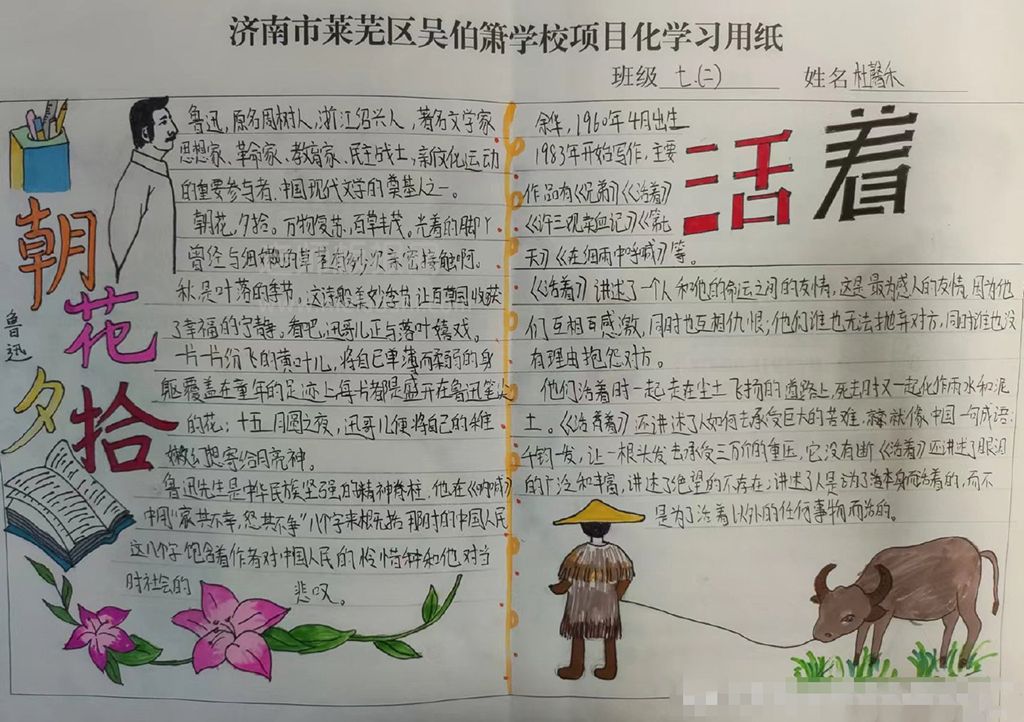 济南市莱芜区吴伯箫学校项目化学习用纸
班级 七.(二) 姓名 杜馨禾
朝花夕拾
鲁迅
鲁迅,原名周树人,浙江绍兴人,著名文学家
思想家、革命家、教育家、民主战士,新文化运动
的重要参与者,中国现代文学的奠基人之一。
朝花夕拾。万物复苏,百草丰茂。光着的脚丫
曾经与细嫩的草有多少次亲密接触啊。
秋是叶落的季节。这诗般美妙季节让百草园收获
了幸福的宁静。看吧,迅哥儿正与落叶嬉戏。
一片一片纷飞的黄叶儿,将自己单薄而柔弱的身
躯覆盖在童年的足迹上每片都是盛开在鲁迅笔尖
的花;十五月圆之夜,迅哥儿便将自己的稚
嫩幻想寄给月亮神。
鲁迅先生是中华民族坚强的精神脊柱,他在《呐喊》
中用"哀其不幸,怒其不争"八个字来概括那时的中国人民
这八个字饱含着作者对中国人民的怜惜种和他对当
时社会的 悲叹。
活着
余华,1960年4月出生
1983年开始写作,主要
作品有《兄弟》《活着》
《许三观卖血记》《第七
天》《在细雨中呼喊》等。
《活着》讲述了一个人和他的命运之间的友情,这是最为感人的友情,因为他
们互相互感激,同时也互相仇恨;他们谁也无法抛弃对方,同时谁也没
有理由抱怨对方。
他们活着时一起走在尘土飞扬的道路上,死去时又一起化作雨水和泥
土。《活着》还讲述了人如何去承受巨大的苦难,就像中国一句成语:
千钧一发,让一根头发去承受三万斤的重压,它没有断《活着》还讲述了眼泪
的广泛和丰富,讲述了绝望的不存在;讲述了人是为了活本身而活着的,而不
是为了活着以外的任何事物而活的。